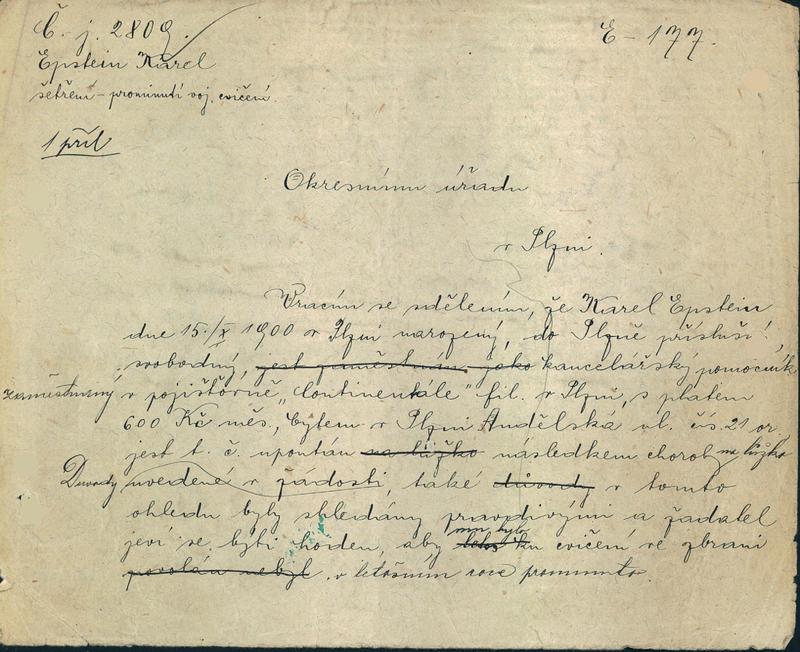 Č. j. 2809.
E – 177.
Epstein Karel
šetření – prominutí voj. cvičení.
1 příl
Okresnímu úřadu
v Plzni.
Vracím se sdělením, že Karel Epstein
dne 15./X 1900 v Plzni narozený, do Plzně přísluší,
svobodný, jest zaměstnán jako kancelářský pomocník
zaměstnaný v pojišťovně „Continentale" fil. v Plzni, s platem
600 Kč měs., bytem v Plzni Andělská ul. čís. 21 or,
jest t. č. upoután na lůžko následkem choroby na lůžko
Důvody uvedené v žádosti, také důvody v tomto
ohledu byly shledány pravdivými a žadatel
jeví se býti hoden, aby letos mu bylo ku cvičení ve zbrani
povolán nebyl. v letošním roce prominuto.